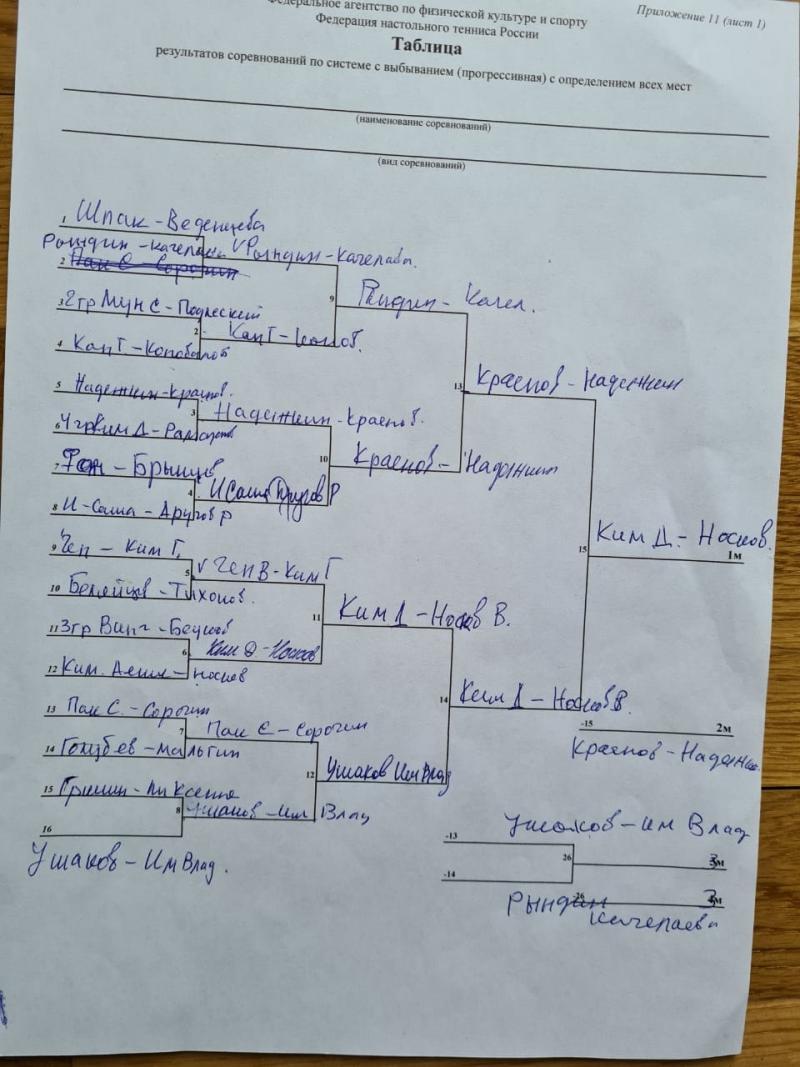 Федеральное агентство по физической культуре и спорту
Приложение 11 (лист 1)
Федерация настольного тенниса России
Таблица
результатов соревнований по системе с выбыванием (прогрессивная) с определением всех мест
(наименование соревнований)
(вид соревнований)
1 Шпак - Веденцева
Рындин - Качелаев
2 Пак С - Сорокин
V Рындин - Качелаев.
9 Рындин - Качел.
3 2гр Мун С - Подлеский
2 Кан Г -
4 Кан Г. -
13 Краснов - Надежкин
5 Надежкин - Краснов.
3 Надежкин - Краснов.
6 4гр Ким Д -
10 Краснов - Надежкин
7 - Брынцев
4 И Саша Другов Р
8 И - Саша - Другов Р
15 Ким Д. - Носков.
1м
9 Чеп - Ким Г.
5 V Чеп В - Ким Г
10 - Тихонов.
11 Ким Д - Носков В.
11 3гр -
6 Ким Д - Носков
12 Ким. - Носков
14 Ким Д - Носков В.
13 Пак С. - Сорокин
7 Пак С - Сорокин
-15
2м
Краснов - Надежкин
14 Голубев - Малыгин
12 Ушаков Им Влад
15 Гришин - Ли Ксения
8 Ушаков - Им Влад
16
Ушаков - Им Влад.
Ушаков - Им Влад
-13
26
3м
-14
-26
3м
Рындин
Качелаев